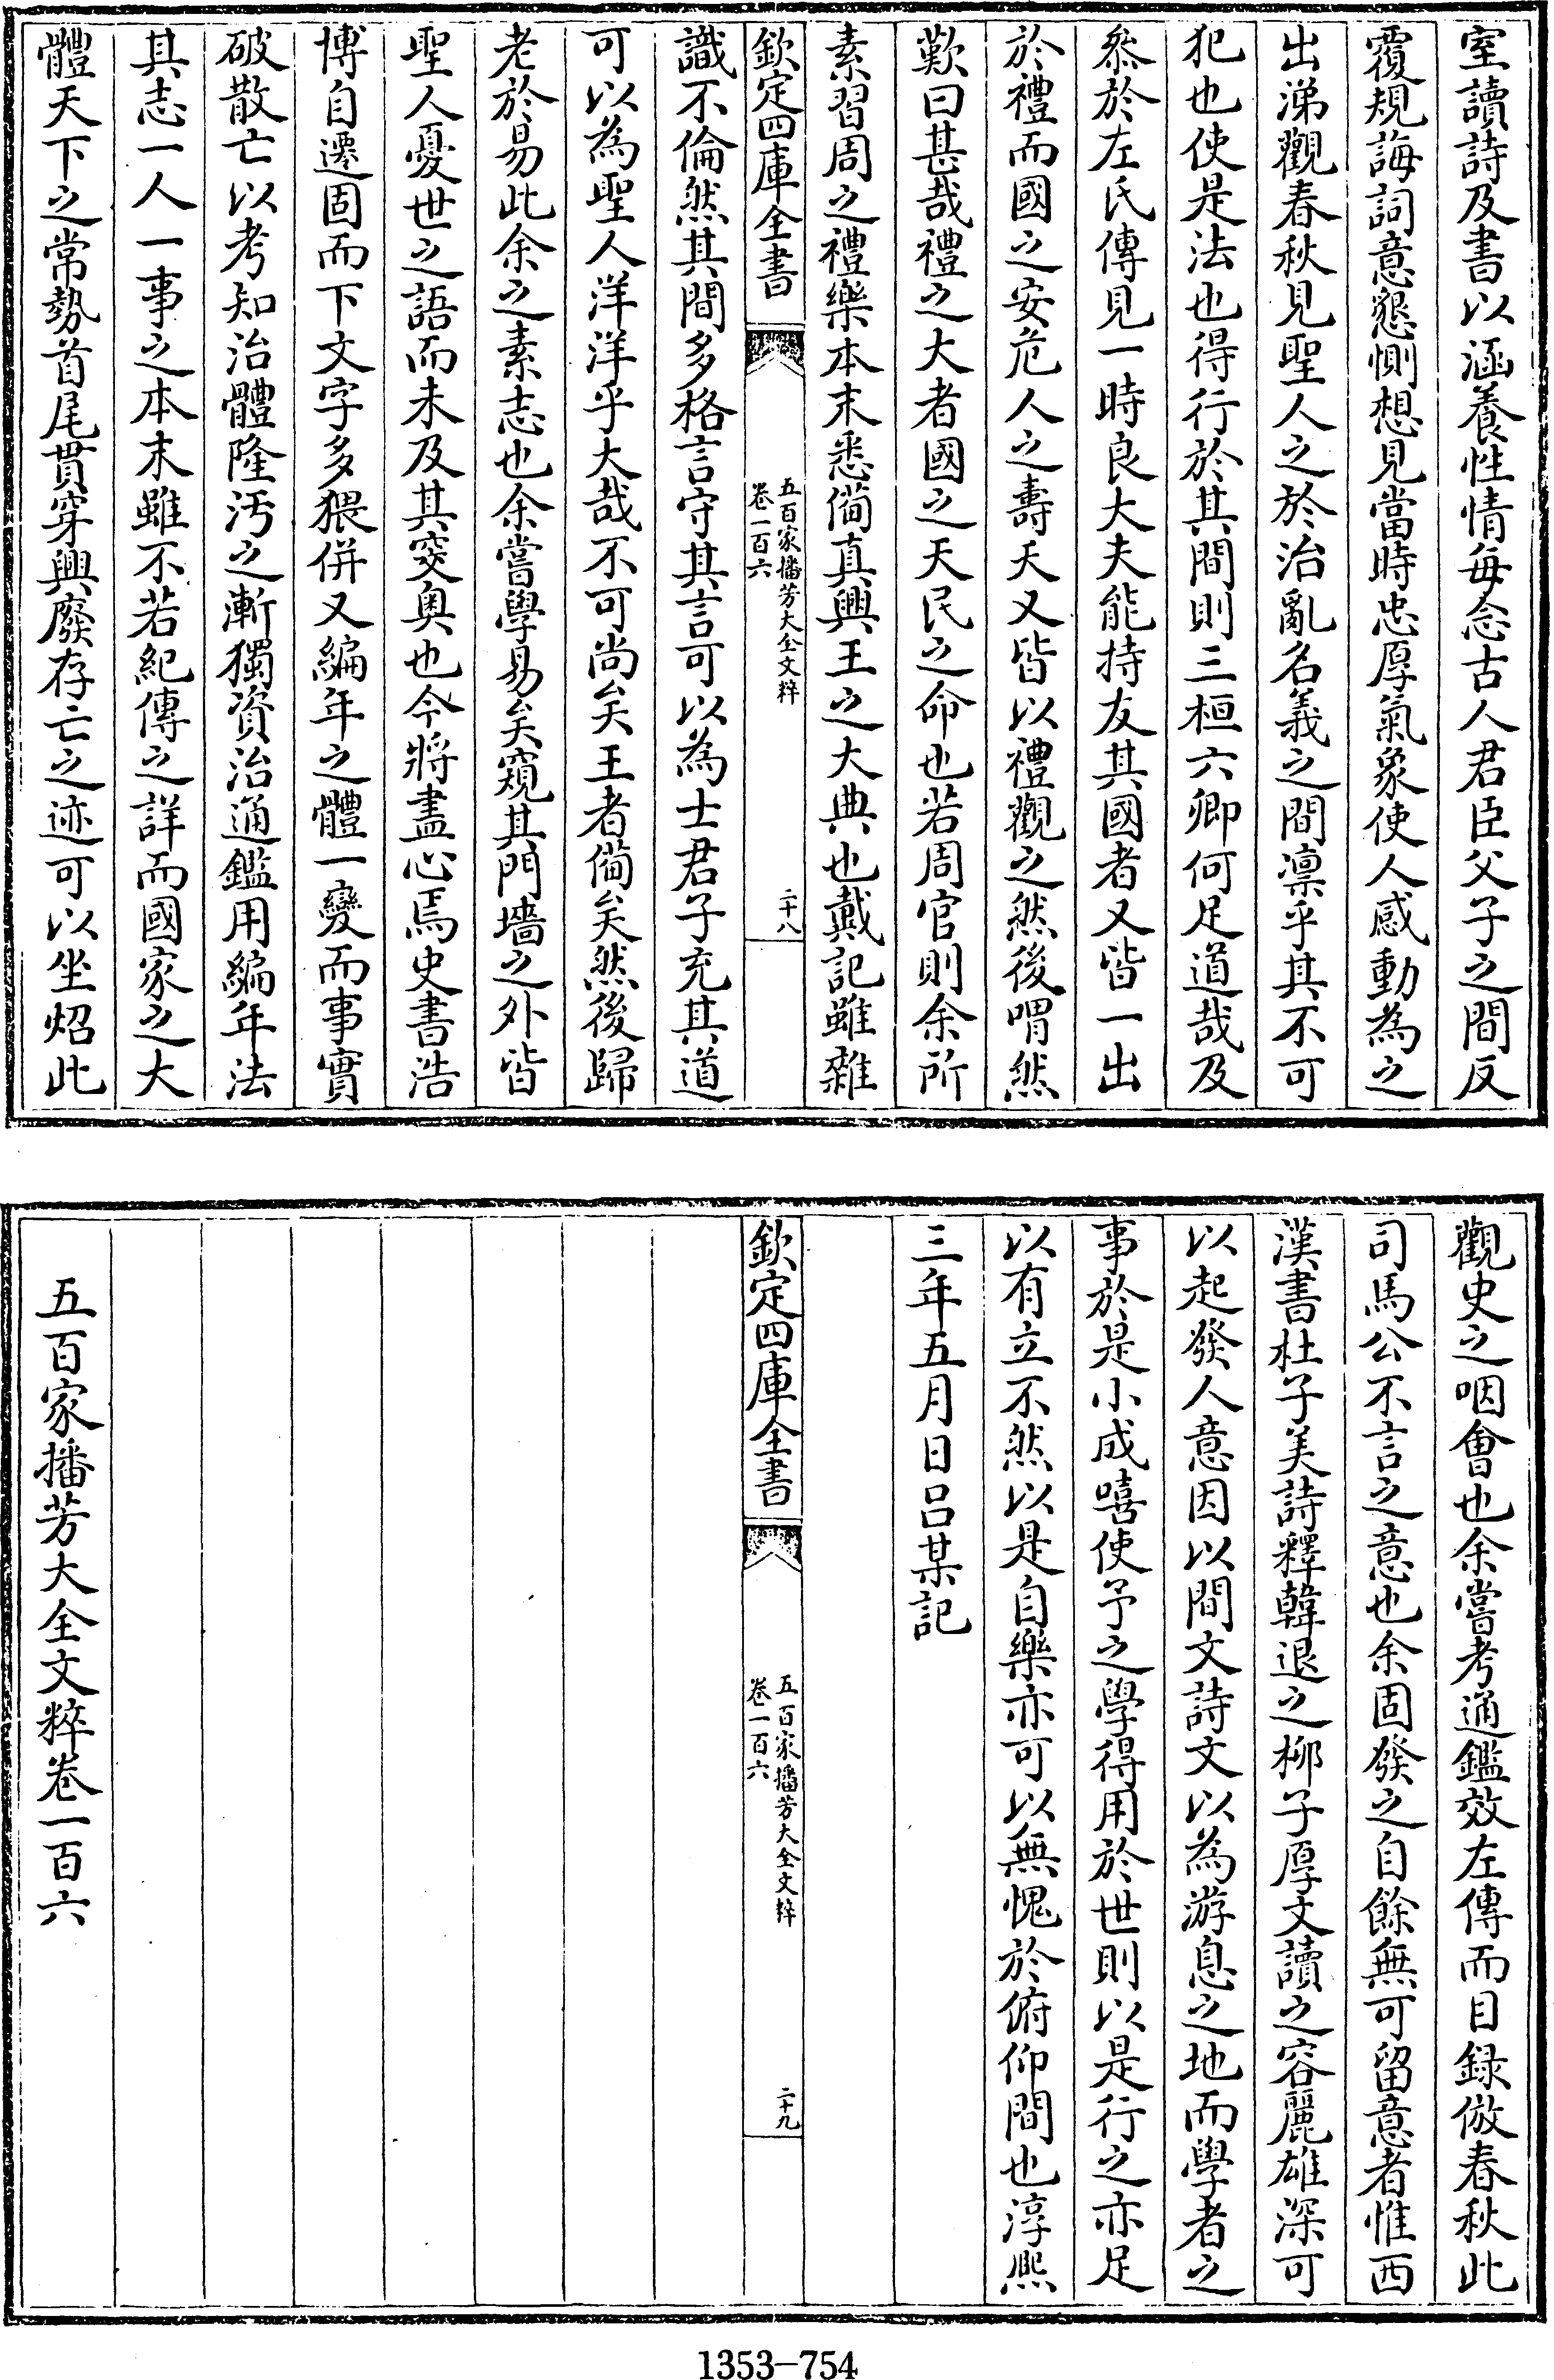 室讀詩及書以涵養性情每念古人君臣父子之間反
覆規誨詞意懇惻想見當時忠厚氣象使人感動為之
出涕觀春秋見聖人之於治亂名義之間凛乎其不可
犯也使是法也得行於其間則三桓六卿何足道哉及
叅於左氏傳見一時良大夫能持友其國者又皆一出
於禮而國之安危人之壽夭又皆以禮觀之然後喟然
歎曰甚哉禮之大者國之天民之命也若周官則余所
素習周之禮樂本末悉備真興王之大典也戴記雖雜
欽定四庫全書
五百家播芳大全文粹
卷一百六
二十八
識不倫然其間多格言守其言可以為士君子充其道
可以為聖人洋洋乎大哉不可尚矣王者備矣然後歸
老於易此余之素志也余嘗學易矣窺其門墻之外皆
聖人憂世之語而未及其窔奥也今將盡心焉史書浩
博自遷固而下文字多猥併又編年之體一變而事實
破散亡以考知治體隆污之漸獨資治通鑑用編年法
其志一人一事之本末雖不若紀傳之詳而國家之大
體天下之常勢首尾貫穿興廢存亡之迹可以坐炤此
觀史之咽會也余嘗考通鑑效左傳而目録倣春秋此
司馬公不言之意也余固發之自餘無可留意者惟西
漢書杜子美詩釋韓退之柳子厚文讀之容麗雄深可
以起發人意因以間文詩文以為游息之地而學者之
事於是小成嘻使予之學得用於世則以是行之亦足
以有立不然以是自樂亦可以無愧於俯仰間也淳熈
三年五月日吕某記
欽定四庫全書
五百家播芳大全文粹
卷一百六
二十九
五百家播芳大全文粹卷一百六
1353-754